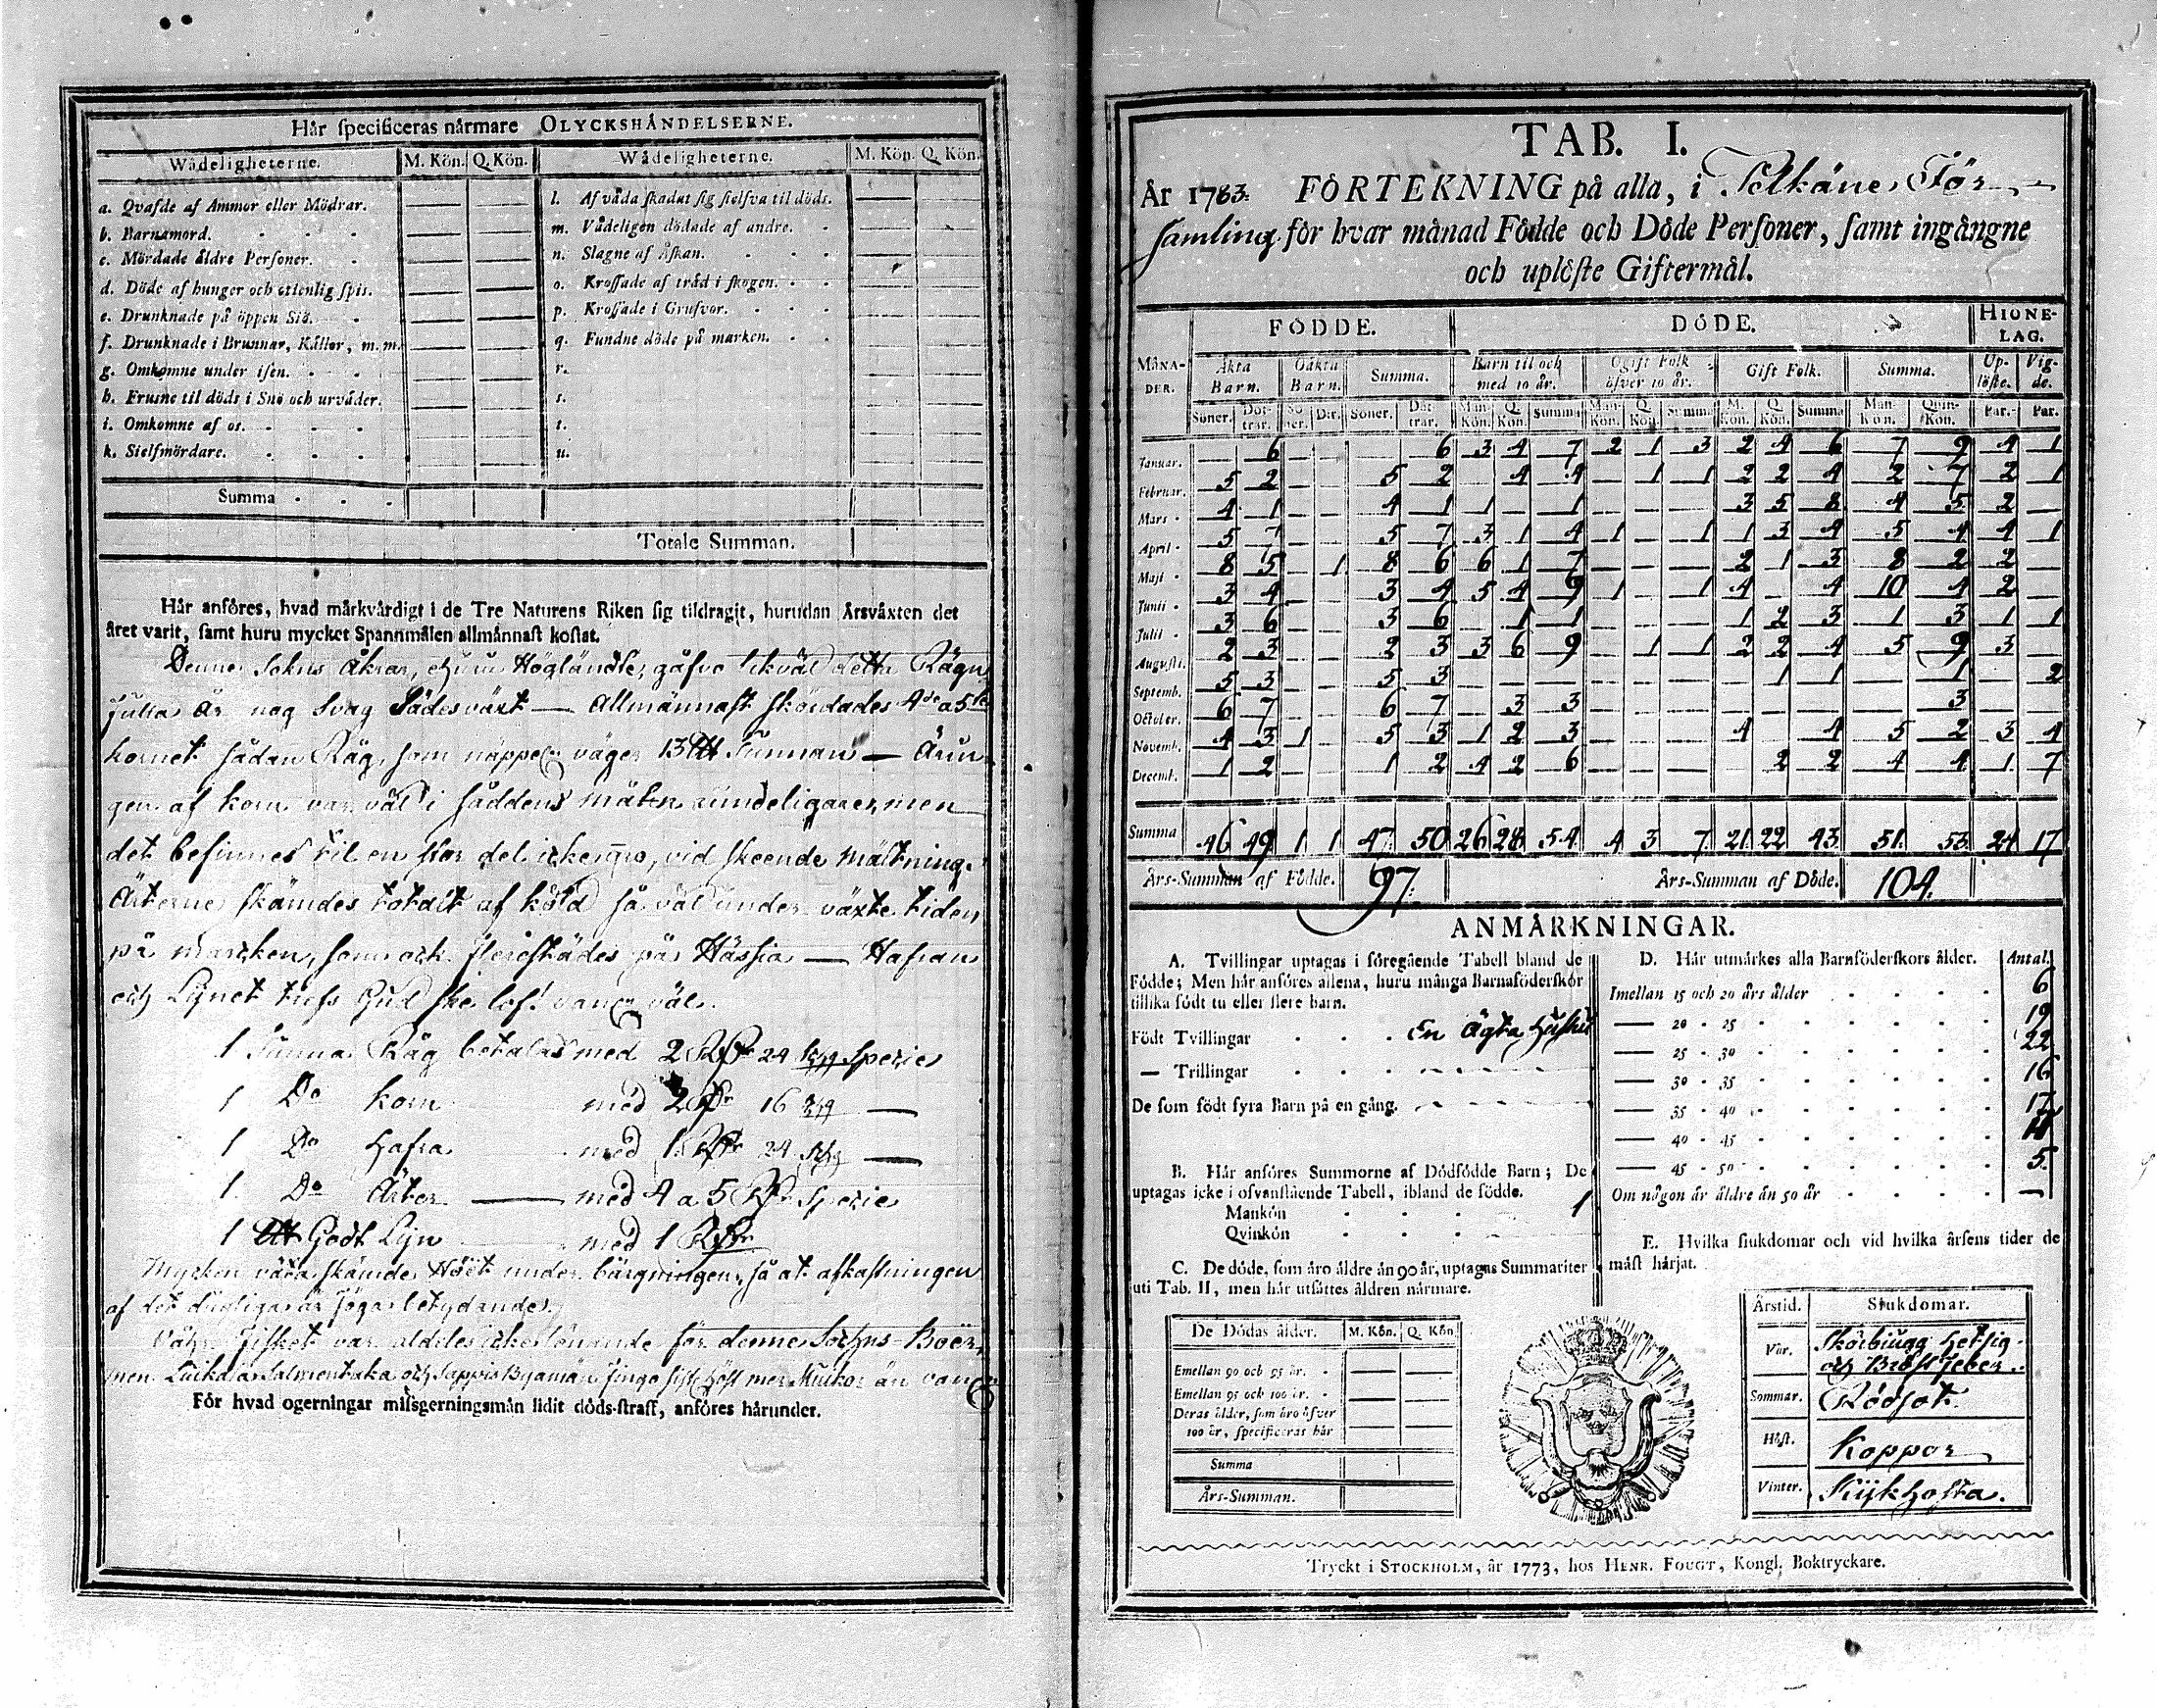 Hår specificeras nårmare OLYCKSHÅNDELSERNE.
Wådeligheterne. M. Kön. Q. Kön. Wådeligheterne. M. Kön. Q. Kön.
a. Qvafde af Ammor eller Mödrar. — — l. Af våda skadat sig sielfva til döds. — —
b. Barnamord. — — m. Vådeligen dödade af andre. — —
c. Mördade äldre Personer. — — n. Slagne af Åskan. — —
d. Döde af hunger och otienlig spis. — — o. Krossade af träd i skogen. — —
e. Drunknade på öppen Siö. — — p. Krossade i Grufvor. — —
f. Drunknade i Brunnar, Källor, m.m. — — q. Fundne döde på marken. — —
g. Omkomne under isen. — — r. — —
h. Frusne til döds i Snö och urväder. — — s. — —
i. Omkomne af os. — — t. — —
k. Sielfmördare. — — u. — —
Summa
Totale Summan.
Hår anfôres, hvad mårkvårdigt i de Tre Naturens Riken sig tildragit, hurudan Årsvåxten det
året varit, samt huru mycket Spannmålen allmånnast kostat.
Denne Sokns Åkrar, ehuru Högländte, gåfvo likväl detta Rägn
fulla År nog Svag Sädesväxt — Allmännast skördades 4de a 5te
kornet sådan Råg, som näppeln väger 13 Tunnan —
gen af korn var väl i såddens måtto men
det befinnes til en stor del icke vid skeende mältning.
Ärterne skämdes totalt af köld så väl under växte tiden
på marcken, som ock på Hässia — Hafran
och Lijnet trefs Gud ske lof! väl.
1 Tunna Råg betalas med 2 Rdr 24 Specie
1 Do Korn med 2 Rdr 16 —
1 Do Hafra med 1 Rdr 24 —
1 Do Ärter — med 4 a 5 Rdr Specie
1 Godt Lijn med 1 Rdr
Mycken väta skämde Höet under bärgningen, så at afkastningen
af det dugliga är föga betydande.
Fisket var aldeles icke lönande för denne Sochns-Boer,
men Salmentaka och byamän finge sist Höst mer Muikor än
För hvad ogerningar missgerningsmån lidit dôds-straff, anfôres hårunder.
TAB. I.
År 1783. FÖRTEKNING på alla, i Pelkäne För-
samling för hvar månad Födde och Döde Personer, samt ingångne
och uplöste Giftermål.
MÅNA-DER. FÖDDE. DÖDE. HIONE-LAG.
Åkta Barn. Oåkta Barn. Summa. Barn til och med 10 år. Ogift Folk öfver 10 år. Gift Folk. Summa. Up-löste. Vig-de.
Söner. Döt-trar. Sö-ner. Dtr. Söner. Döt-trar. Man-Kön. Q. Kön. Summa Man-Kön. Q. Kön. Summa M. Kön. Q. Kön. Summa Man-Kön. Qvin-Kön. Par. Par.
Januar. — 6 — — — 6 3 4 7 2 1 3 2 4 6 7 9 4 1
Februar. 5 2 — — 5 2 — 4 4 — 1 1 2 2 4 2 7 2 1
Mars 4 1 — — 4 1 1 — 1 — — — 3 5 8 4 5 2 —
April 5 7 — — 5 7 3 1 4 1 — 1 1 3 4 5 4 4 1
Maji 8 5 — 1 8 6 6 1 7 — — — 2 1 3 8 2 2 —
Junii 3 4 — — 3 4 5 4 9 1 — 1 4 — 4 10 4 2 —
Julii 3 6 — — 3 6 — 1 1 — — — 1 2 3 1 3 1 1
Augusti. 2 3 — — 2 3 3 6 9 — 1 1 2 2 4 5 9 3 —
Septemb. 5 3 — — 5 3 — — — — — — — 1 1 — 1 — 2
Octoler. 6 7 — — 6 7 — 3 3 — — — — — — — 3 — —
Novemb. 4 3 1 — 5 3 1 2 3 — — — 4 — 4 5 2 3 4
Decemb. 1 2 — — 1 2 4 2 6 — — — — 2 2 4 4 1 7
Summa 46 49 1 1 47 50 26 28 54 4 3 7 21 22 43 51 53 24 17
Års-Summan af Födde. 97. Års-Summan af Döde. 104.
ANMÅRKNINGAR.
A. Tvillingar uptagas i fôregående Tabell bland de
Födde; Men hår anfôres allena, huru många Barnafôderskor
tillika fôdt tu eller flere barn.
Fôdt Tvillingar En Ägta Hustru
— Trillingar
De som fôdt fyra Barn på en gång.
B. Hår anfôres Summorne af Dôdfôdde Barn; De
uptagas icke i ofvanstående Tabell, ibland de fôdde.
Mankôn 1
Qvinkôn
C. De dôde, som åro åldre ån 90 år, uptagas Summariter
uti Tab. II, men hår utsåttes åldren nårmare.
De Dôdas ålder. M. Kön. Q. Kön
Emellan 90 och 95 år. — —
Emellan 95 och 100 år. — —
Deras ålder, som åro öfver
100 år, specificeras hår — —
Summa
Års-Summan.
D. Hår utmårkes alla Barnfôderskors ålder. Antal.
Imellan 15 och 20 års ålder 6
— 20 - 25 19
— 25 - 30 22
— 30 - 35 16
— 35 - 40 17
— 40 - 45
— 45 - 50 5.
Om någon år åldre ån 50 år —
E. Hvilka siukdomar och vid hvilka årsens tider de
måst hårjat.
Årstid. Siukdomar.
Vår. Skörbiugg Hetsig-
och Bröst Feber.
Sommar. Rödsot.
Hôst. Koppor
Vinter. Kijkhosta.
Tryckt i STOCKHOLM, år 1773, hos HENR. FOUGT, Kongl. Boktryckare.